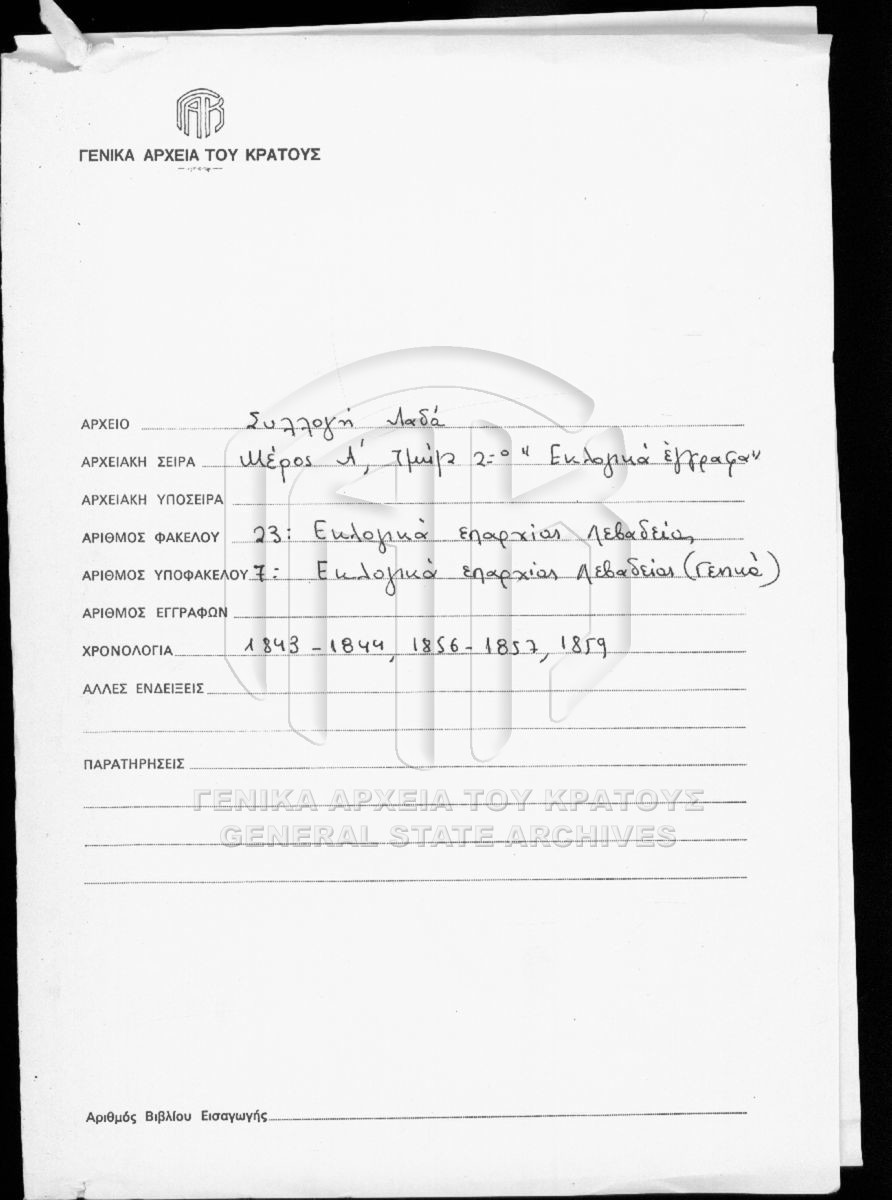 ΓΕΝΙΚΑ ΑΡΧΕΙΑ ΤΟΥ ΚΡΑΤΟΥΣ
ΑΡΧΕΙΟ Συλλογή Λαδά
ΑΡΧΕΙΑΚΗ ΣΕΙΡΑ Μέρος Α', Τμήμα 2=ο "Εκλογικά έγγραφα"
ΑΡΧΕΙΑΚΗ ΥΠΟΣΕΙΡΑ
ΑΡΙΘΜΟΣ ΦΑΚΕΛΟΥ 23: Εκλογικά επαρχίας Λεβαδείας
ΑΡΙΘΜΟΣ ΥΠΟΦΑΚΕΛΟΥ 7: Εκλογικά επαρχίας Λεβαδείας (Γενικά)
ΑΡΙΘΜΟΣ ΕΓΓΡΑΦΩΝ
ΧΡΟΝΟΛΟΓΙΑ 1843-1844, 1856-1857, 1859
ΑΛΛΕΣ ΕΝΔΕΙΞΕΙΣ
ΠΑΡΑΤΗΡΗΣΕΙΣ
ΓΕΝΙΚΑ ΑΡΧΕΙΑ ΤΟΥ ΚΡΑΤΟΥΣ
GENERAL STATE ARCHIVES
Αριθμός Βιβλίου Εισαγωγής